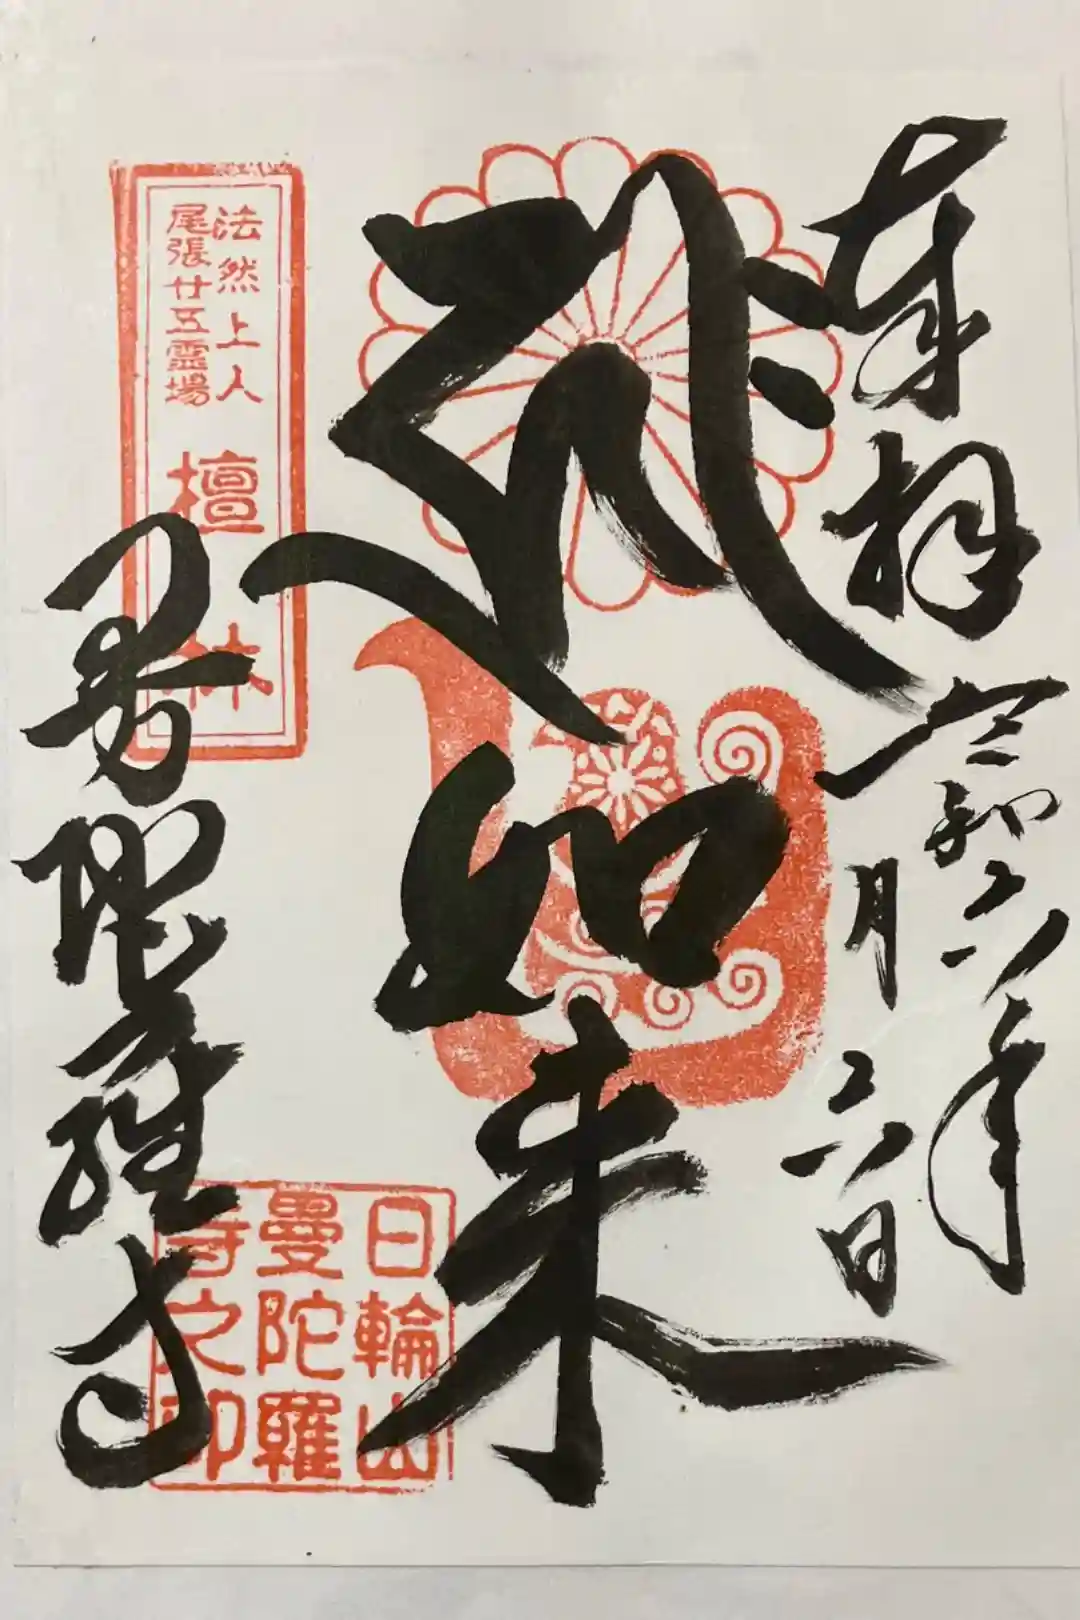 奉拝
令和六年
月六日
如来
法然上人
尾張廿五霊場
檀林
曼陀羅寺
日輪山
曼陀羅
寺之印